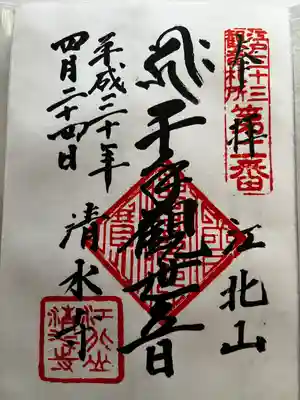 江戸三十三
観音札所
第二番
奉拝
江北山
千手觀世音
清水寺
平成三十年
四月二十四日